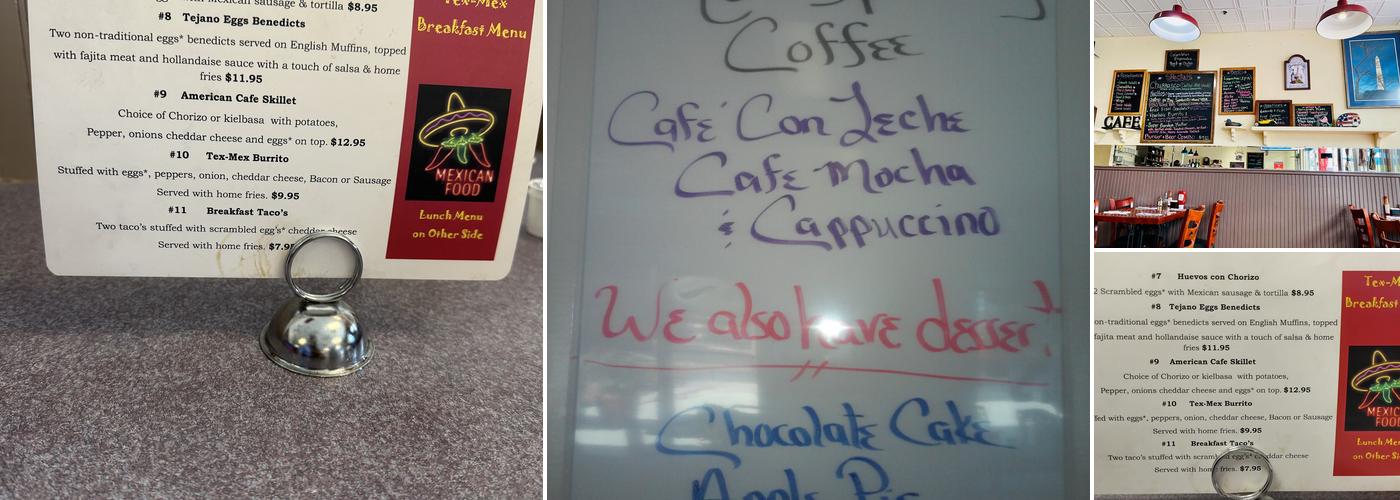 Mexican sausage & tortilla $8.95
#8 Tejano Eggs Benedicts
Two non-traditional eggs* benedicts served on English Muffins, topped
with fajita meat and hollandaise sauce with a touch of salsa & home
fries $11.95
#9 American Cafe Skillet
Choice of Chorizo or kielbasa with potatoes,
Pepper, onions cheddar cheese and eggs* on top. $12.95
#10 Tex-Mex Burrito
Stuffed with eggs*, peppers, onion, cheddar cheese, Bacon or Sausage
Served with home fries. $9.95
#11 Breakfast Taco's
Two taco's stuffed with scrambled egg's* cheddar cheese
Served with home fries. $7.95
Tex-Mex
Breakfast Menu
MEXICAN
FOOD
Lunch Menu
on Other Side
Coffee
Café Con Leche
Cafe Mocha
& Cappuccino
We also have dessert
Chocolate Cake
Apple Pie
Specials
CAFE
#7 Huevos con Chorizo
2 Scrambled eggs* with Mexican sausage & tortilla $8.95
#8 Tejano Eggs Benedicts
non-traditional eggs* benedicts served on English Muffins, topped
fajita meat and hollandaise sauce with a touch of salsa & home
fries $11.95
#9 American Cafe Skillet
Choice of Chorizo or kielbasa with potatoes,
Pepper, onions cheddar cheese and eggs* on top. $12.95
#10 Tex-Mex Burrito
fed with eggs*, peppers, onion, cheddar cheese, Bacon or Sausage
Served with home fries. $9.95
#11 Breakfast Taco's
Two taco's stuffed with scrambled egg's* cheddar cheese
Served with home fries. $7.95
Tex-M
Breakfast
MEXIC
FOO
Lunch Me
on Other S